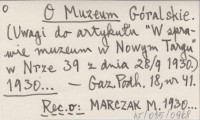 O Muzeum Góralskie.
(Uwagi do artykułu "W spra-
wie muzeum w Nowym Targu"
w Nrze 39 z dnia 28/9 1930.)
1930... — Gaz. Podh. 18, nr 41.
Rec. o: MARCZAK M. 1930...